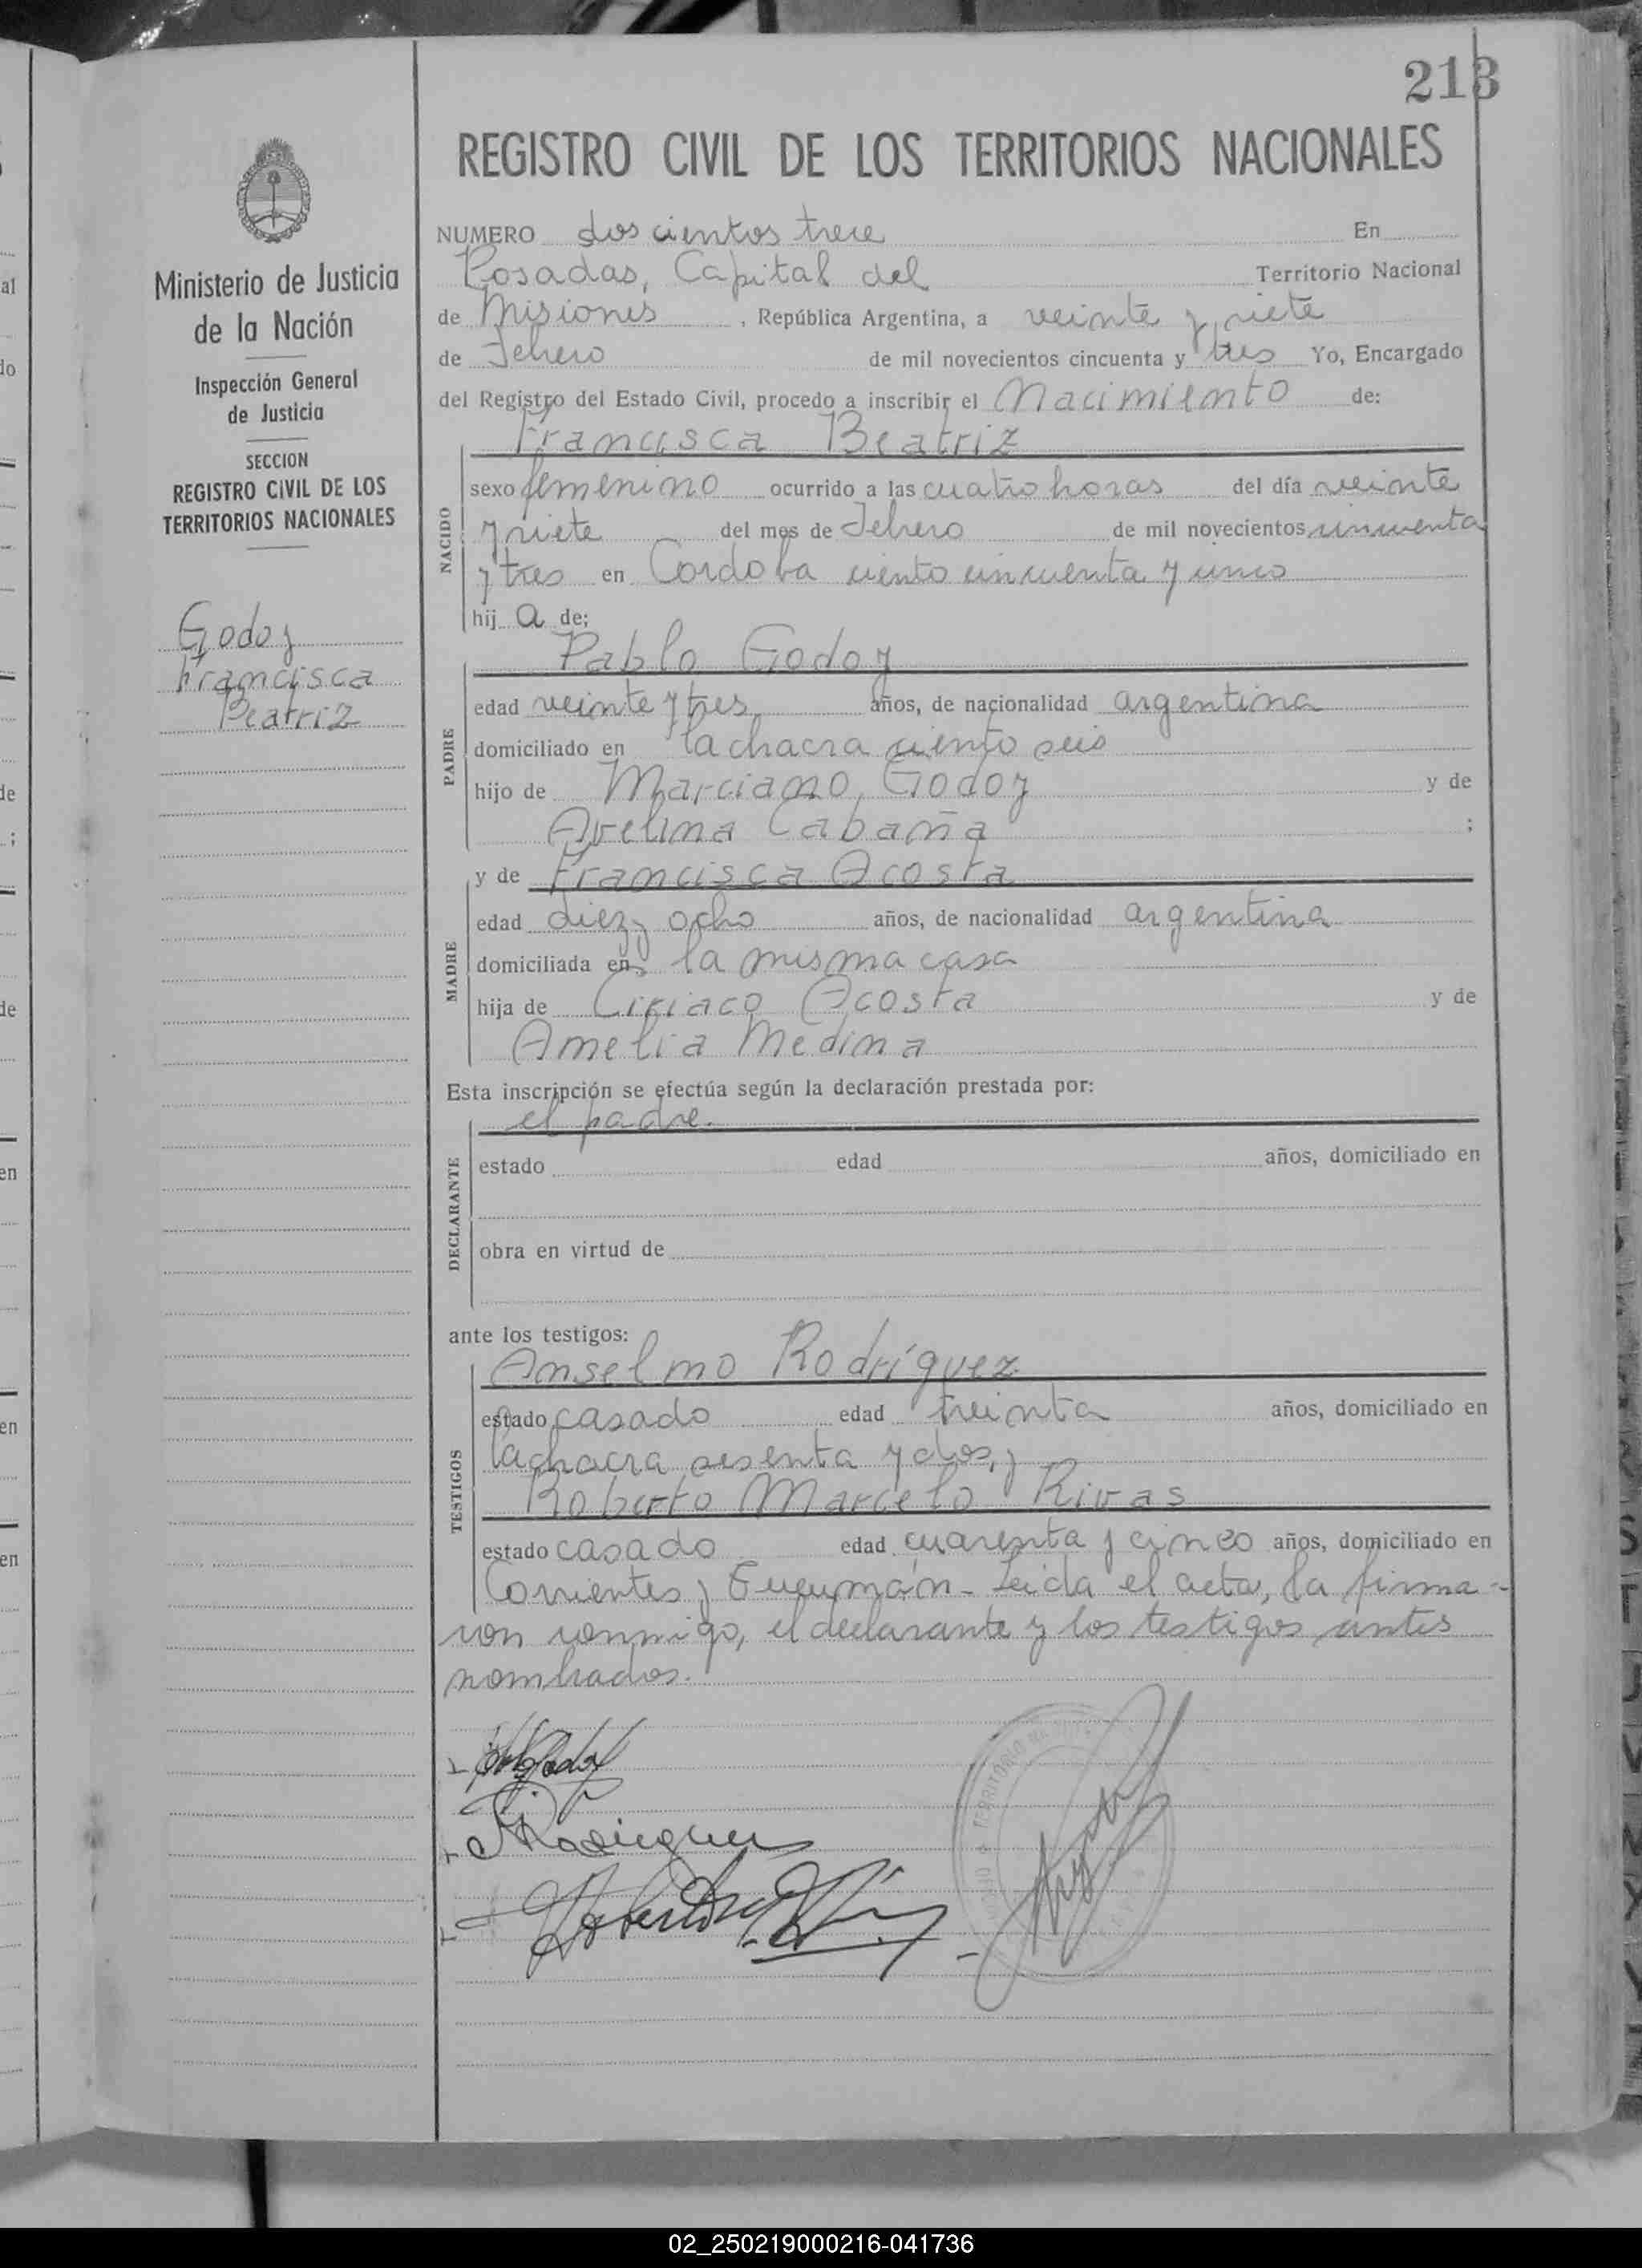 213
REGISTRO CIVIL DE LOS TERRITORIOS NACIONALES
Ministerio de Justicia
de la Nación
Inspección General
de Justicia
SECCION
REGISTRO CIVIL DE LOS
TERRITORIOS NACIONALES
Godoy
Francisca
Beatriz
NUMERO dos cientos trece En
Posadas, Capital del Territorio Nacional
de Misiones, República Argentina, a veinte y siete
de Febrero de mil novecientos cincuenta y tres Yo, Encargado
del Registro del Estado Civil, procedo a inscribir el Nacimiento de:
Francisca Beatriz
NACIDO
sexo femenino ocurrido a las cuatro horas del día veinte
y siete del mes de Febrero de mil novecientos cincuenta
y tres en Cordoba ciento cincuenta y uno
hij a de;
Pablo Godoy
PADRE
edad veinte y tres años, de nacionalidad argentina
domiciliado en la chacra ciento seis
hijo de Marciano Godoy y de
Avelina Cabaña ;
y de Francisca Acosta
MADRE
edad diez y ocho años, de nacionalidad argentina
domiciliada en la misma casa
hija de Ciriaco Acosta y de
Amelia Medina
Esta inscripción se efectúa según la declaración prestada por:
el padre.
DECLARANTE
estado edad años, domiciliado en
obra en virtud de
ante los testigos:
Anselmo Rodríguez
TESTIGOS
estado casado edad treinta años, domiciliado en
la chacra sesenta y dos, y
Roberto Marcelo Rivas
estado casado edad cuarenta y cinco años, domiciliado en
Corrientes y Tucumán - Leida el acta, la firma-
ron conmigo, el declarante y los testigos antes
nombrados.
TERRITORIO
02_250219000216-041736